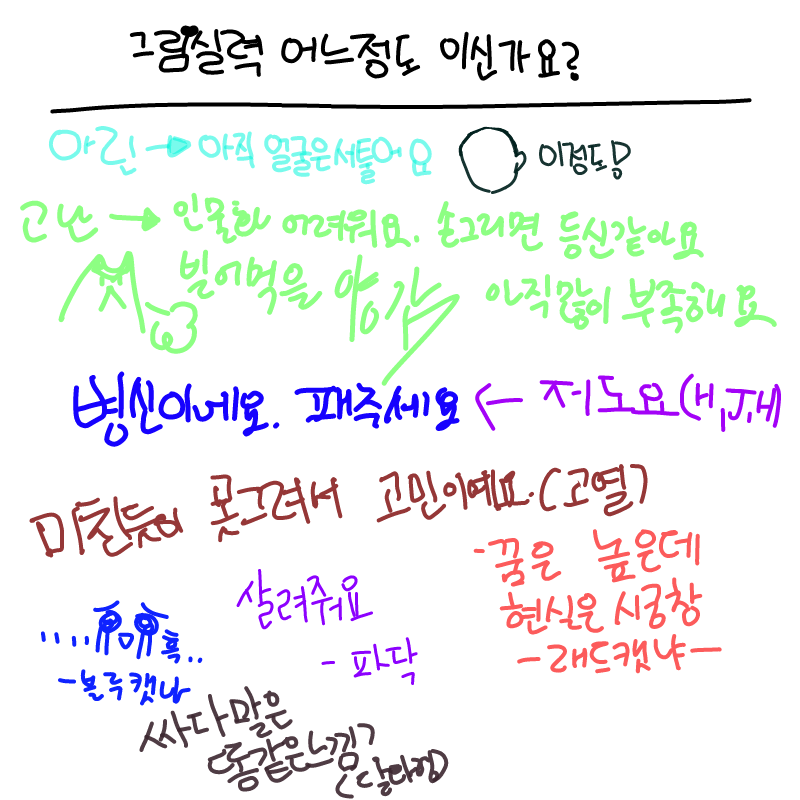 그림실력 어느정도 이신가요?
아린 → 아직 얼굴은서툴어요 이정도!
고난 → 인물화 어려워요. 손그리면 등신같아요
빌어먹을 양감 아직많이 부족해요
병신이네요. 패주세요 ← 저도요(H,J,H)
미친듯이 못그려서 고민이예요.(고열)
-꿈은 높은데
현식은 시궁창
-래드캣냐-
살려줘요
-파닥
..... 흑..
-볼루캣냐
싸다말은
똥같은느낌?
(달타밍)